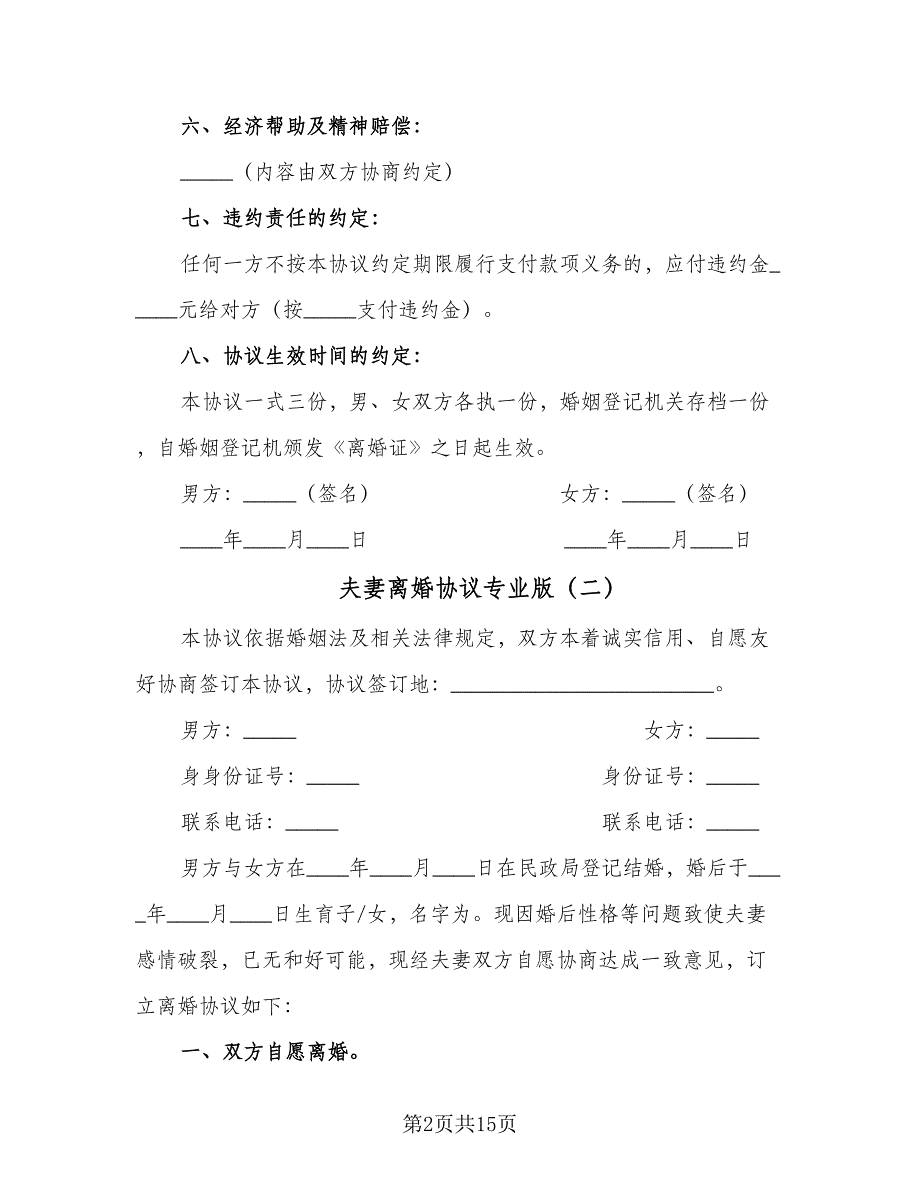 六、经济帮助及精神赔偿：
_____（内容由双方协商约定）
七、违约责任的约定：
任何一方不按本协议约定期限履行支付款项义务的，应付违约金_
____元给对方（按_____支付违约金）。
八、协议生效时间的约定：
本协议一式三份，男、女双方各执一份，婚姻登记机关存档一份
，自婚姻登记机颁发《离婚证》之日起生效。
男方：_____（签名） 女方：_____（签名）
____年____月____日 ____年____月____日
夫妻离婚协议专业版（二）
本协议依据婚姻法及相关法律规定，双方本着诚实信用、自愿友
好协商签订本协议，协议签订地：_________________________。
男方：_____ 女方：_____
身身份证号：_____ 身份证号：_____
联系电话：_____ 联系电话：_____
男方与女方在____年____月____日在民政局登记结婚，婚后于___
_年____月____日生育子/女，名字为。现因婚后性格等问题致使夫妻
感情破裂，已无和好可能，现经夫妻双方自愿协商达成一致意见，订
立离婚协议如下：
一、双方自愿离婚。
第2页共15页